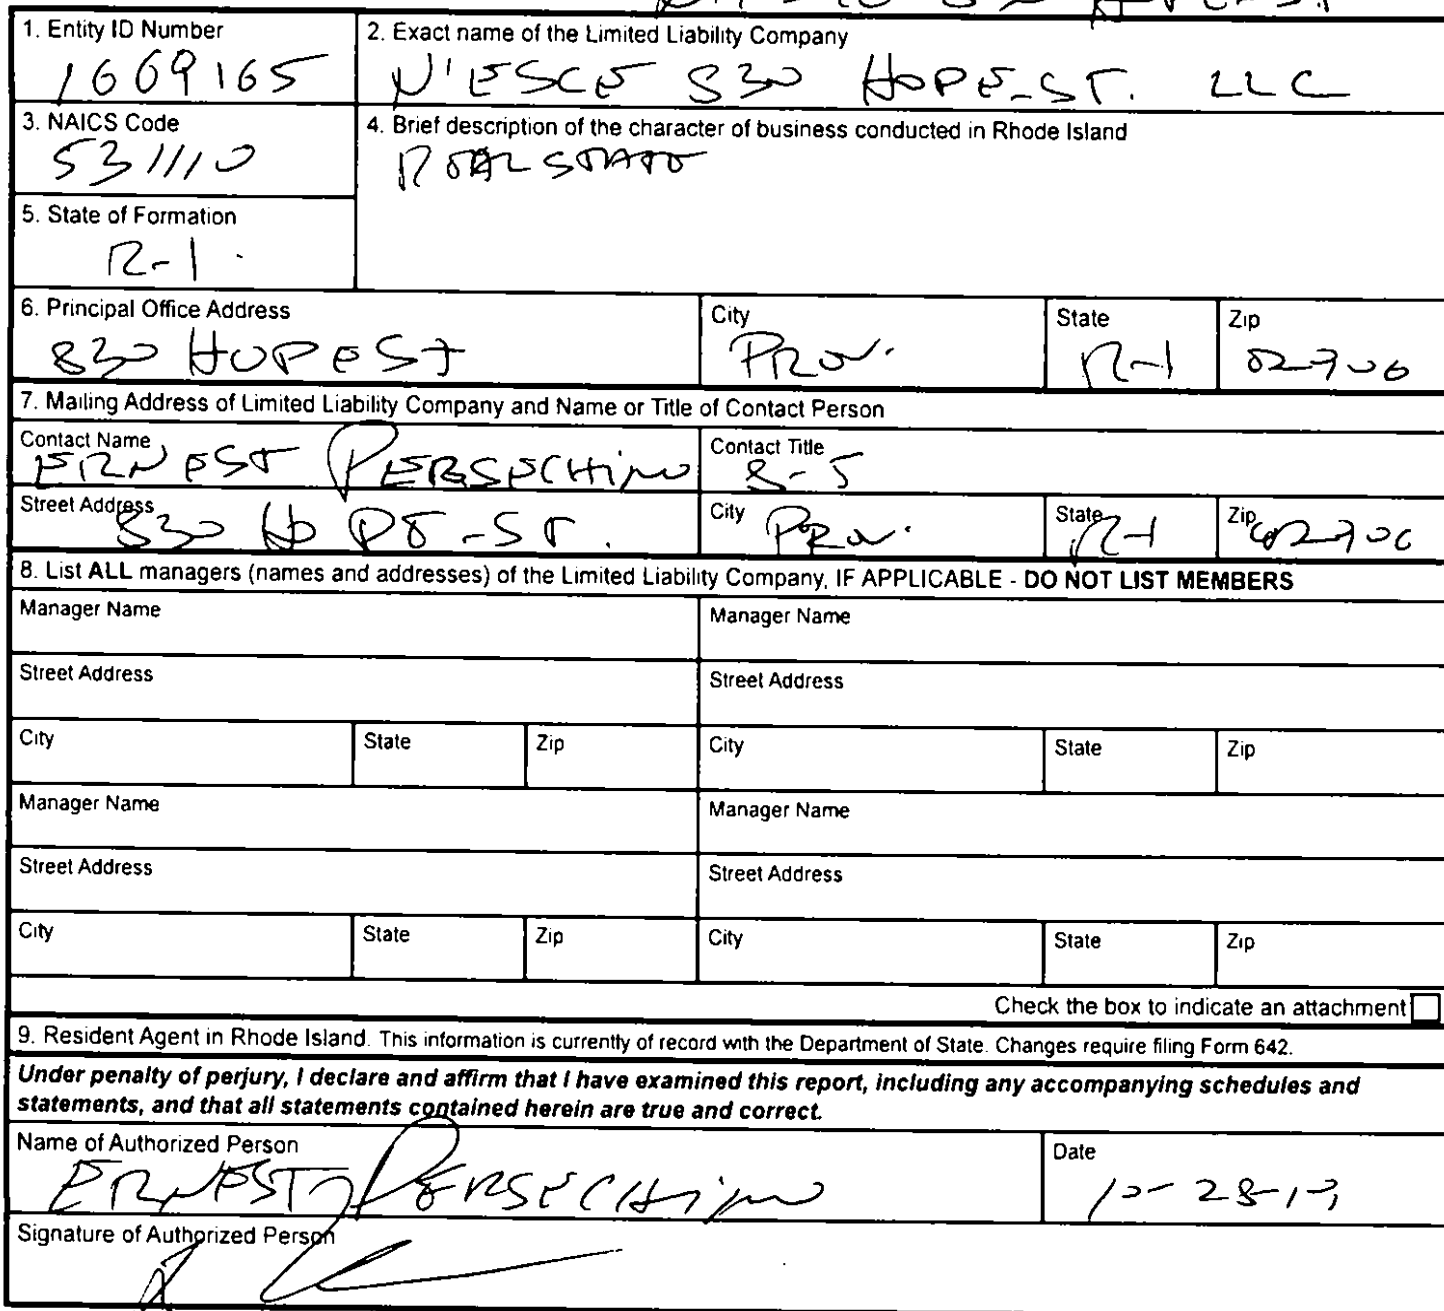 1. Entity ID Number
1669165
2. Exact name of the Limited Liability Company
N'ESCE 830 HOPE-ST. LLC
3. NAICS Code
531110
4. Brief description of the character of business conducted in Rhode Island
REAL STATE
5. State of Formation
R-I.
6. Principal Office Address
830 HOPE ST
City
PROV.
State
R-I
Zip
02906
7. Mailing Address of Limited Liability Company and Name or Title of Contact Person
Contact Name
ERNEST PERSECHINO
Contact Title
Street Address
830 HOPE-ST.
City
PROV.
State
R-I
Zip
02906
8. List ALL managers (names and addresses) of the Limited Liability Company, IF APPLICABLE - DO NOT LIST MEMBERS
Manager Name
Manager Name
Street Address
Street Address
City State Zip City State Zip
Manager Name
Manager Name
Street Address
Street Address
City State Zip City State Zip
Check the box to indicate an attachment
9. Resident Agent in Rhode Island. This information is currently of record with the Department of State. Changes require filing Form 642.
Under penalty of perjury, I declare and affirm that I have examined this report, including any accompanying schedules and
statements, and that all statements contained herein are true and correct.
Name of Authorized Person
ERNEST PERSECHINO
Date
10-28-19
Signature of Authorized Person